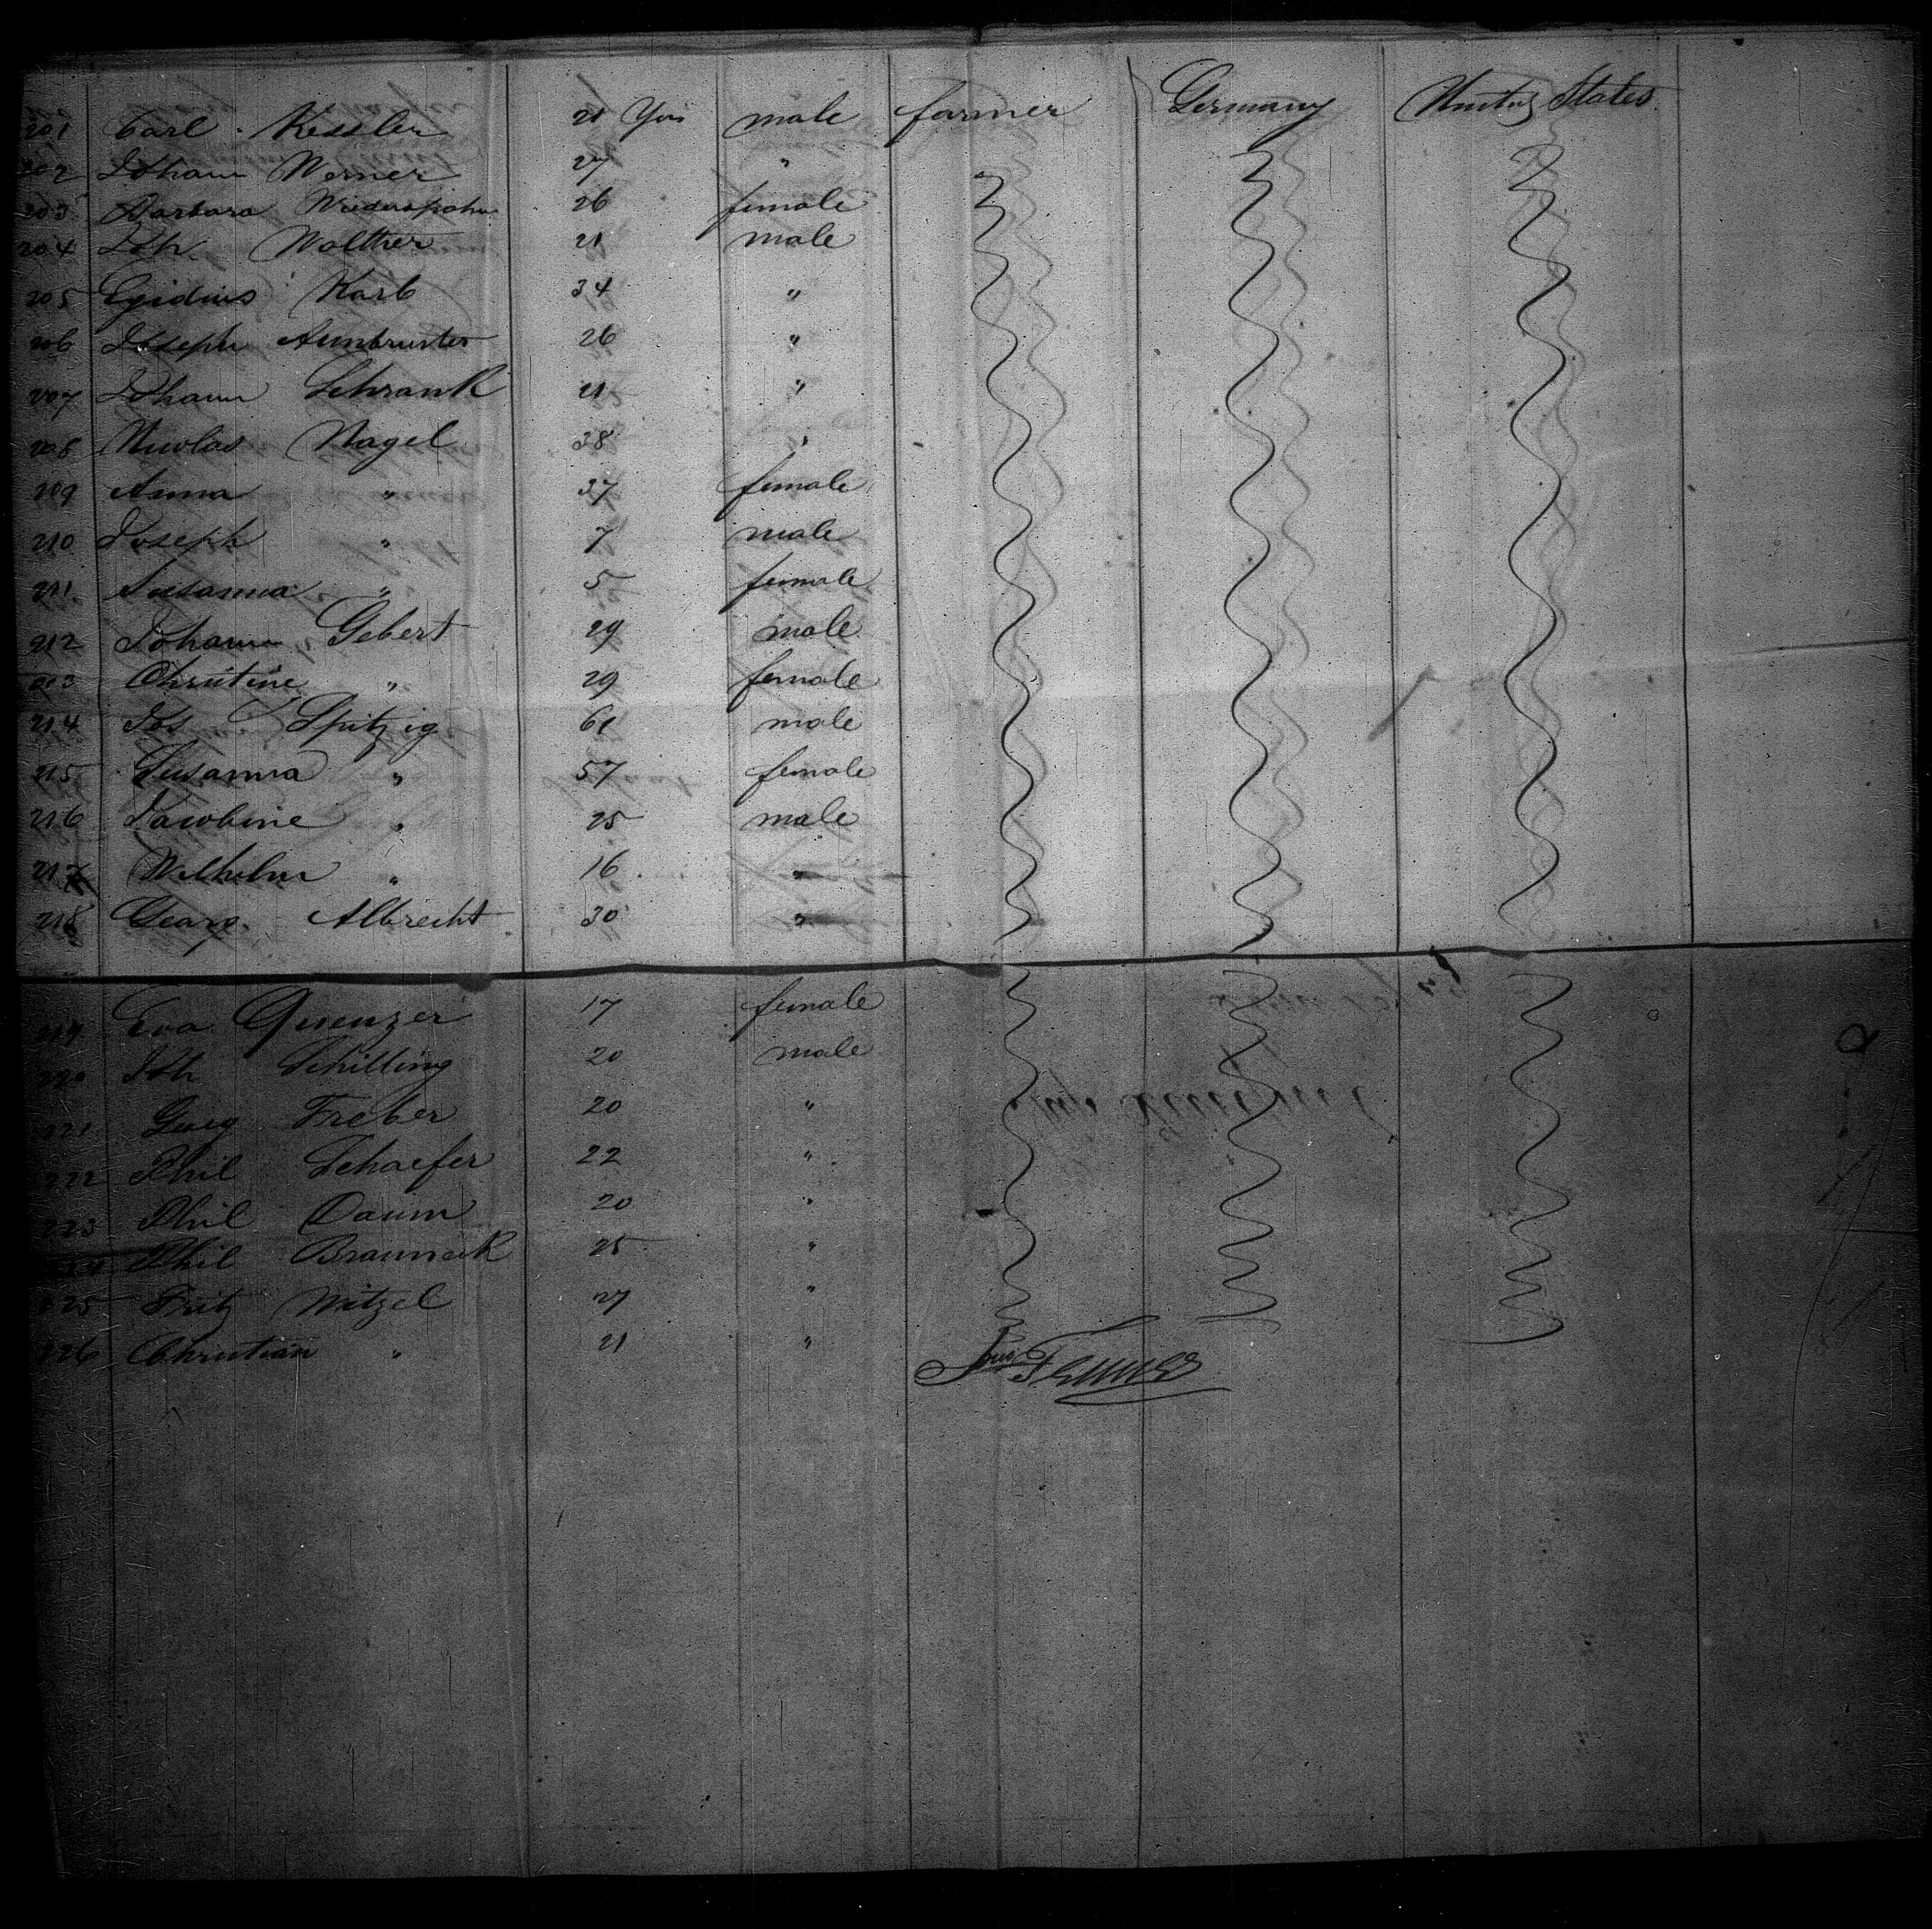 201 Carl Kessler 21 Yrs male farmer Germany United States
202 Johann Werner 27 "
203 Barbara 26 female
204 Joh. Walther 21 male
205 Egidius Karb 34 "
206 Joseph Armbruster 26 "
207 Johann Schrank 21 "
208 Nicolas Nagel 38 "
209 Anna " 37 female
210 Joseph " 7 male
211 Susanna " 5 female
212 Johann Gebert 29 male
213 Christine " 29 female
214 Jos Spitzig 61 male
215 Susanna " 57 female
216 Jacobine " 25 male
217 Wilhelm " 16 "
218 Georg. Albrecht 30 "
219 Eva Quenzer 17 female
220 Joh Schilling 20 male
221 Georg Freber 20 "
222 Phil Schaefer 22 "
223 Phil Daum 20 "
224 Phil 25 "
225 Fritz Witzel 27 "
226 Christian " 21 "